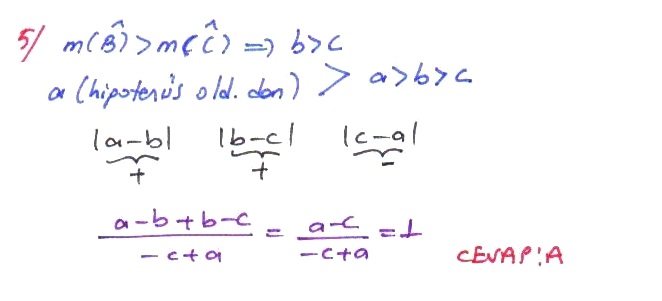 5/ m(B̂) > m(Ĉ) => b>c
a (hipotenüs old. dan) > a>b>c
|a-b| |b-c| |c-a|
+ + -
a-b+b-c / -c+a = a-c / -c+a = 1
CEVAP:A